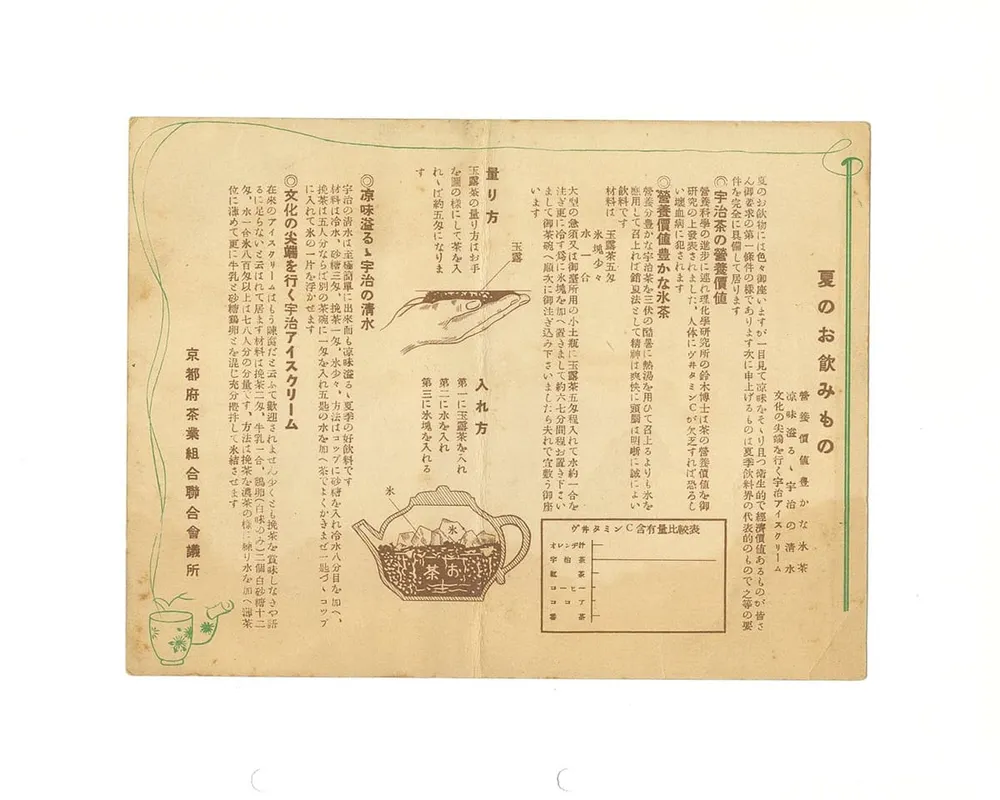 夏のお飲みもの
營養價値豊かな氷茶
凉味溢るゝ宇治の清水
文化の尖端を行く宇治アイスクリーム
夏のお飲物には色々御座いますが一目見て凉味をそゝり且つ衛生的で經濟價値あるものが皆さ
ん御要求の第一條件の樣であります次に申上げるものは夏季飲料界の代表的のもので之等の要
件を完全に具備して居ります
◎宇治茶の營養價値
營養科學の進歩に連れ理化學研究所の鈴木博士は茶の營養價値を御
研究の上發表されました、人体にヴヰタミンCが欠乏すれば恐ろし
い壊血病に犯されます
◎營養價値豊かな氷茶
營養分豊かな宇治茶を三伏の酷暑に熱湯を用ひて召上るよりも氷を
應用して召上れば銷夏法として精神は爽快に頭腦は明晰に誠によい
飲料です
材料は
玉露茶五匁
氷塊少々
水一合
大型の急須又は御臺所用の小土瓶に玉露茶五匁程入れて水約一合を
注ぎ更に冷す爲に氷塊を加へ置きまして約六七分間程お置き下さい
まして御茶碗へ順次に御注ぎ込み下さいましたら夫れで宜敷う御座
います
ヴヰタミンC含有量比較表
オレンヂ汁
宇治茶
紅茶
コーヒー
ココア
番茶
量り方
玉露茶の量り方はお手
を圖の様にして茶を入
れゝば約五匁になりま
す
玉露
入れ方
第一に玉露茶を入れ
第二に水を入れ
第三に氷塊を入れる
氷
氷
お茶
◎凉味溢るゝ宇治の清水
宇治の清水は至極簡單に出來而も凉味溢るゝ夏季の好飲料です
材料は冷水、砂糖三匁、挽茶一匁、氷少々、方法はコップに砂糖を入れ冷水八分目を加へ、
挽茶は五人分なら別の茶碗に一匁を入れ五匙の水を加へ茶でよくかきまぜ一匙づゝコップ
に入れて氷の一片を浮かせます
◎文化の尖端を行く宇治アイスクリーム
在來のアイスクリームはもう陳腐だと云ふて歡迎されません少くとも挽茶を賞味しなきや語
るに足らないと云はれて居ます材料は挽茶二匁、牛乳一合、鷄卵(白味のみ)二個白砂糖十二
匁、水一合氷八百匁以上は七八人分の分量です、方法は挽茶を濃茶の樣に練り水を加へ薄茶
位に薄めて更に牛乳と砂糖鷄卵とを混じ充分攪拌して氷結させます
京都府茶業組合聯合會議所